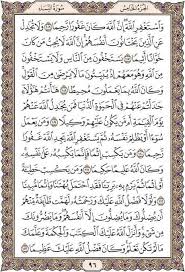 الجزء الخامس سورة النساء
وَٱسْتَغْفِرِ ٱللَّهَ إِنَّ ٱللَّهَ كَانَ غَفُورًا رَّحِيمًا وَلَا تُجَٰدِلْ
عَنِ ٱلَّذِينَ يَخْتَانُونَ أَنفُسَهُمْ إِنَّ ٱللَّهَ لَا يُحِبُّ مَن كَانَ
خَوَّانًا أَثِيمًا يَسْتَخْفُونَ مِنَ ٱلنَّاسِ وَلَا يَسْتَخْفُونَ
مِنَ ٱللَّهِ وَهُوَ مَعَهُمْ إِذْ يُبَيِّتُونَ مَا لَا يَرْضَىٰ مِنَ ٱلْقَوْلِ
وَكَانَ ٱللَّهُ بِمَا يَعْمَلُونَ مُحِيطًا هَٰٓأَنتُمْ هَٰٓؤُلَآءِ
جَٰدَلْتُمْ عَنْهُمْ فِي ٱلْحَيَوٰةِ ٱلدُّنْيَا فَمَن يُجَٰدِلُ ٱللَّهَ عَنْهُمْ
يَوْمَ ٱلْقِيَٰمَةِ أَم مَّن يَكُونُ عَلَيْهِمْ وَكِيلًا وَمَن يَعْمَلْ
سُوٓءًا أَوْ يَظْلِمْ نَفْسَهُۥ ثُمَّ يَسْتَغْفِرِ ٱللَّهَ يَجِدِ ٱللَّهَ غَفُورًا
رَّحِيمًا وَمَن يَكْسِبْ إِثْمًا فَإِنَّمَا يَكْسِبُهُۥ عَلَىٰ نَفْسِهِۦ
وَكَانَ ٱللَّهُ عَلِيمًا حَكِيمًا وَمَن يَكْسِبْ خَطِيٓـَٔةً أَوْ
إِثْمًا ثُمَّ يَرْمِ بِهِۦ بَرِيٓـًٔا فَقَدِ ٱحْتَمَلَ بُهْتَٰنًا وَإِثْمًا مُّبِينًا
وَلَوْلَا فَضْلُ ٱللَّهِ عَلَيْكَ وَرَحْمَتُهُۥ لَهَمَّت طَّآئِفَةٌ
مِّنْهُمْ أَن يُضِلُّوكَ وَمَا يُضِلُّونَ إِلَّآ أَنفُسَهُمْ وَمَا يَضُرُّونَكَ
مِن شَيْءٍ وَأَنزَلَ ٱللَّهُ عَلَيْكَ ٱلْكِتَٰبَ وَٱلْحِكْمَةَ وَعَلَّمَكَ
مَا لَمْ تَكُن تَعْلَمُ وَكَانَ فَضْلُ ٱللَّهِ عَلَيْكَ عَظِيمًا
٩٦